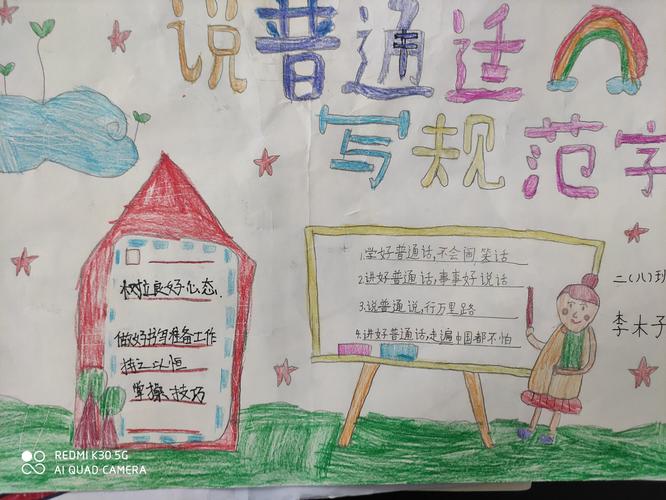 说普通话
写规范字
树立良好心态.
做好书写准备工作
持之以恒
掌握技巧
1.学好普通话,不会闹笑话
2.讲好普通话,事事好说话
3.说普通话,行万里路
4.讲好普通话,走遍中国都不怕
二(八)班
李木子
REDMI K30 5G
AI QUAD CAMERA